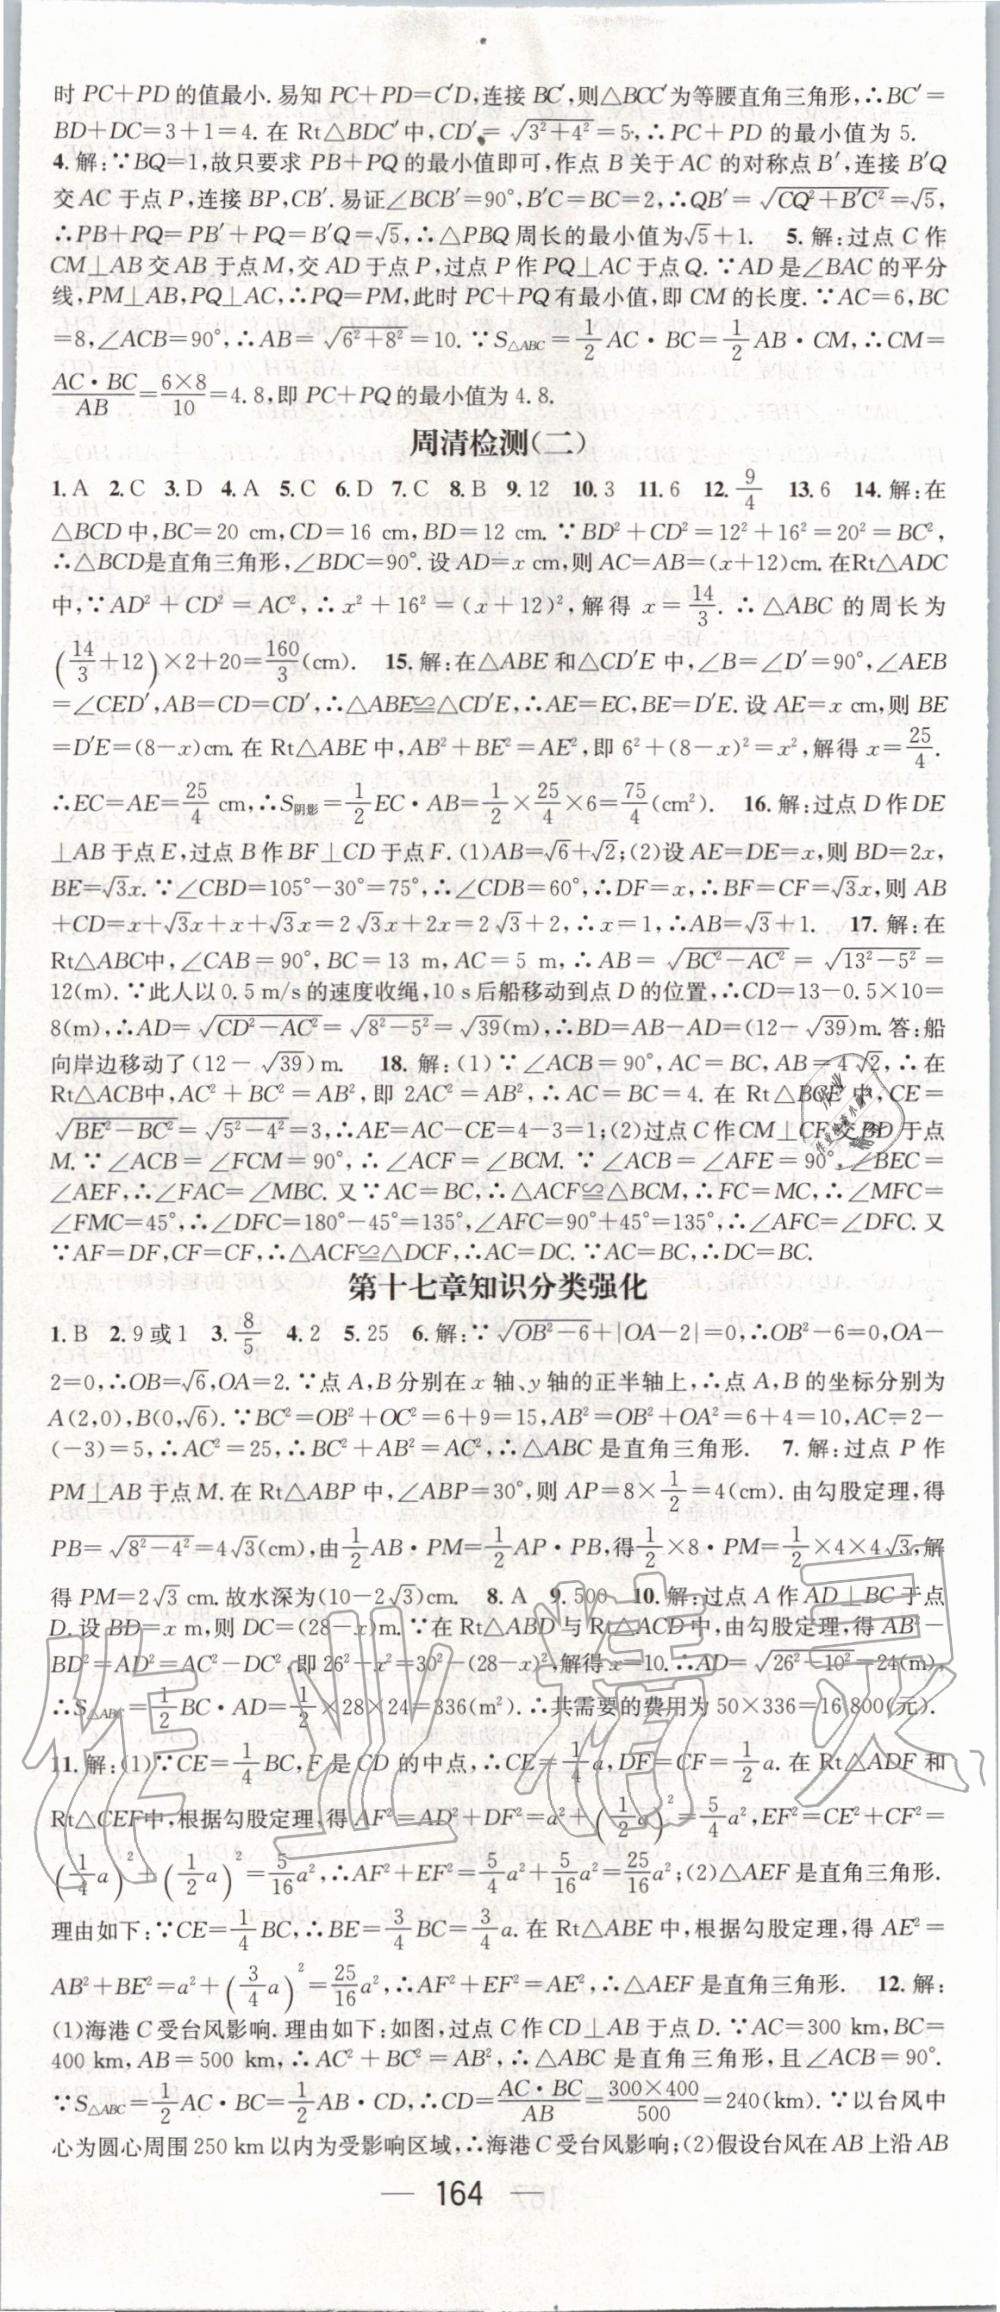 时 PC+PD 的值最小. 易知 PC+PD=C′D,连接 BC′,则△BCC′为等腰直角三角形,∴BC′=
BD+DC=3+1=4. 在 Rt△BDC′中,CD′=√(3²+4²)=5,∴PC+PD 的最小值为 5.
4. 解:∵BQ=1,故只要求 PB+PQ 的最小值即可,作点 B 关于 AC 的对称点 B′,连接 B′Q
交 AC 于点 P,连接 BP,CB′. 易证∠BCB′=90°,B′C=BC=2,∴QB′=√(CQ²+B′C²)=√5,
∴PB+PQ=PB′+PQ=B′Q=√5,∴△PBQ 周长的最小值为√5+1. 5. 解:过点 C 作
CM⊥AB 交 AB 于点 M,交 AD 于点 P,过点 P 作 PQ⊥AC 于点 Q. ∵AD 是∠BAC 的平分
线,PM⊥AB,PQ⊥AC,∴PQ=PM,此时 PC+PQ 有最小值,即 CM 的长度. ∵AC=6,BC
=8,∠ACB=90°,∴AB=√(6²+8²)=10. ∵S△ABC=1/2 AC·BC=1/2 AB·CM,∴CM=
AC·BC/AB=6×8/10=4.8,即 PC+PQ 的最小值为 4.8.
周清检测(二)
1. A 2. C 3. D 4. A 5. C 6. D 7. C 8. B 9. 12 10. 3 11. 6 12. 9/4 13. 6 14. 解:在
△BCD 中,BC=20 cm,CD=16 cm,BD=12 cm. ∵BD²+CD²=12²+16²=20²=BC²,
∴△BCD是直角三角形,∠BDC=90°. 设 AD=x cm,则 AC=AB=(x+12)cm. 在Rt△ADC
中,∵AD²+CD²=AC²,∴x²+16²=(x+12)²,解得 x=14/3. ∴△ABC 的周长为
(14/3+12)×2+20=160/3(cm). 15. 解:在△ABE 和△CD′E 中,∠B=∠D′=90°,∠AEB
=∠CED′,AB=CD=CD′,∴△ABE≌△CD′E,∴AE=EC,BE=D′E. 设 AE=x cm,则 BE
=D′E=(8-x)cm. 在 Rt△ABE 中,AB²+BE²=AE²,即 6²+(8-x)²=x²,解得 x=25/4.
∴EC=AE=25/4 cm,∴S阴影=1/2 EC·AB=1/2×25/4×6=75/4(cm²). 16. 解:过点 D 作 DE
⊥AB 于点 E,过点 B 作 BF⊥CD 于点 F. (1)AB=√6+√2;(2)设 AE=DE=x,则 BD=2x,
BE=√3x. ∵∠CBD=105°-30°=75°,∴∠CDB=60°,∴DF=x,∴BF=CF=√3x,则 AB
+CD=x+√3x+x+√3x=2√3x+2x=2√3+2,∴x=1,∴AB=√3+1. 17. 解:在
Rt△ABC中,∠CAB=90°,BC=13 m,AC=5 m,∴AB=√(BC²-AC²)=√(13²-5²)=
12(m). ∵此人以 0.5 m/s 的速度收绳,10 s 后船移动到点 D 的位置,∴CD=13-0.5×10=
8(m),∴AD=√(CD²-AC²)=√(8²-5²)=√39(m),∴BD=AB-AD=(12-√39)m. 答:船
向岸边移动了(12-√39)m. 18. 解:(1)∵∠ACB=90°,AC=BC,AB=4√2,∴在
Rt△ACB中,AC²+BC²=AB²,即 2AC²=AB²,∴AC=BC=4. 在 Rt△BCE 中,CE=
√(BE²-BC²)=√(5²-4²)=3,∴AE=AC-CE=4-3=1;(2)过点 C 作 CM⊥CF 交 BD 于点
M. ∵∠ACB=∠FCM=90°,∴∠ACF=∠BCM. ∵∠ACB=∠AFE=90°,∠BEC=
∠AEF,∴∠FAC=∠MBC. 又∵AC=BC,∴△ACF≌△BCM,∴FC=MC,∴∠MFC=
∠FMC=45°,∴∠DFC=180°-45°=135°,∠AFC=90°+45°=135°,∴∠AFC=∠DFC. 又
∵AF=DF,CF=CF,∴△ACF≌△DCF,∴AC=DC. ∵AC=BC,∴DC=BC.
第十七章知识分类强化
1. B 2. 9或1 3. 8/5 4. 2 5. 25 6. 解:∵√(OB²-6)+|OA-2|=0,∴OB²-6=0,OA-
2=0,∴OB=√6,OA=2. ∵点 A,B 分别在 x 轴、y 轴的正半轴上,∴点 A,B 的坐标分别为
A(2,0),B(0,√6). ∵BC²=OB²+OC²=6+9=15,AB²=OB²+OA²=6+4=10,AC=2-
(-3)=5,∴AC²=25,∴BC²+AB²=AC²,∴△ABC 是直角三角形. 7. 解:过点 P 作
PM⊥AB 于点 M. 在 Rt△ABP 中,∠ABP=30°,则 AP=8×1/2=4(cm). 由勾股定理,得
PB=√(8²-4²)=4√3(cm),由1/2 AB·PM=1/2 AP·PB,得1/2×8·PM=1/2×4×4√3,解
得 PM=2√3 cm. 故水深为(10-2√3)cm. 8. A 9. 500 10. 解:过点 A 作 AD⊥BC 于点
D. 设 BD=x m,则 DC=(28-x)m. ∵在 Rt△ABD 与 Rt△ACD 中,由勾股定理,得 AB²-
BD²=AD²=AC²-DC²,即 26²-x²=30²-(28-x)²,解得 x=10. ∴AD=√(26²-10²)=24(m),
∴S△ABC=1/2 BC·AD=1/2×28×24=336(m²). ∴共需要的费用为 50×336=16 800(元).
11. 解:(1)∵CE=1/4 BC,F 是 CD 的中点,∴CE=1/4 a,DF=CF=1/2 a. 在 Rt△ADF 和
Rt△CEF中,根据勾股定理,得 AF²=AD²+DF²=a²+(1/2 a)²=5/4 a²,EF²=CE²+CF²=
(1/4 a)²+(1/2 a)²=5/16 a²,∴AF²+EF²=5/4 a²+5/16 a²=25/16 a²;(2)△AEF 是直角三角形.
理由如下:∵CE=1/4 BC,∴BE=3/4 BC=3/4 a. 在 Rt△ABE 中,根据勾股定理,得 AE²=
AB²+BE²=a²+(3/4 a)²=25/16 a²,∴AF²+EF²=AE²,∴△AEF 是直角三角形. 12. 解:
(1)海港 C 受台风影响. 理由如下:如图,过点 C 作 CD⊥AB 于点 D. ∵AC=300 km,BC=
400 km,AB=500 km,∴AC²+BC²=AB²,∴△ABC 是直角三角形,且∠ACB=90°.
∵S△ABC=1/2 AC·BC=1/2 AB·CD,∴CD=AC·BC/AB=300×400/500=240(km). ∵以台风中
心为圆心周围 250 km 以内为受影响区域,∴海港 C 受台风影响;(2)假设台风在 AB 上沿 AB
— 164 —